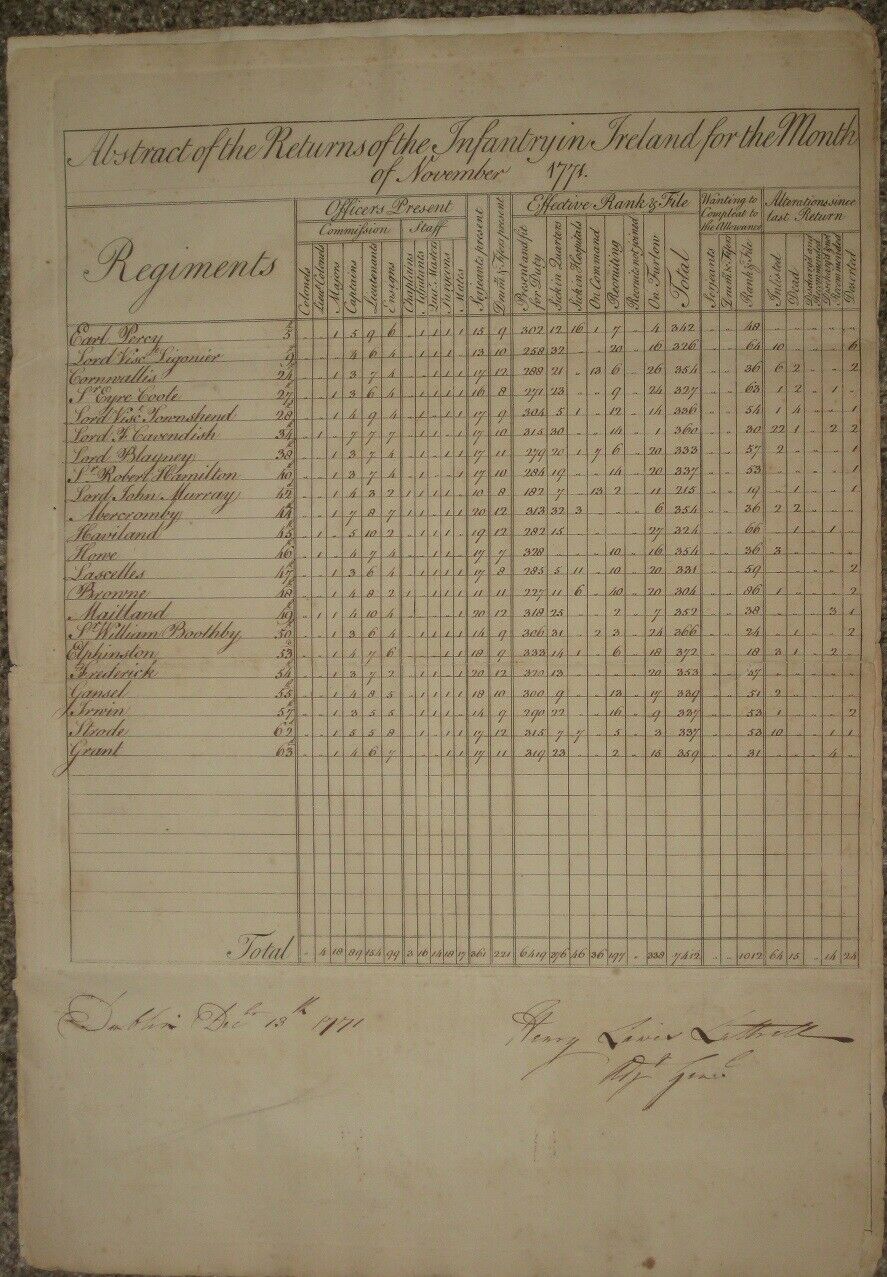 Abstract of the Returns of the Infantry in Ireland for the Month
of November 1771.
Regiments
Officers Present
Commission Staff
Colonels
Lieut Colonels
Majors
Captains
Lieutenants
Ensigns
Chaplains
Adjutants
Quar. Masters
Surgeons
Mates
Serjeants present
Drum & Fifes present
Effective Rank & File
Present and fit for Duty
Sick in Quarters
Sick in Hospitals
On Command
Recruiting
Recruits not joined
On Furlow
Total
Wanting to Compleat to the Allowance
Serjeants
Drum & Fifes
Rank & File
Alterations since last Return
Inlisted
Dead
Discharged and Recommended
Discharged not Recommended
Deserted
Earl Percy 5 .. .. 1 5 9 6 .. 1 1 1 1 15 9 302 12 16 1 7 .. 4 342 .. .. 48 .. .. .. .. ..
Lord Visc. Ligonier 9 .. .. .. 4 6 4 .. 1 1 1 1 13 10 258 32 .. .. 20 .. 16 326 .. .. 64 10 .. .. .. 6
Cornwallis 24 .. .. 1 3 7 4 .. 1 .. 1 1 17 12 288 21 .. 13 6 .. 26 354 .. .. 36 6 2 .. .. 2
Sr. Eyre Coote 27 .. .. 1 3 6 4 .. 1 1 1 1 16 8 271 23 .. .. 9 .. 24 327 .. .. 63 1 2 .. 1 ..
Lord Visc Townshend 28 .. .. 1 4 9 4 .. 1 .. 1 1 17 9 304 5 1 .. 12 .. 14 336 .. .. 54 1 4 .. .. 1
Lord F. Cavendish 34 .. 1 .. 7 7 7 .. 1 1 1 1 17 10 315 30 .. .. 14 .. 1 360 .. .. 30 22 1 .. 2 2
Lord Blayney 38 .. .. 1 3 7 4 .. 1 1 1 1 17 11 279 20 1 7 6 .. 20 333 .. .. 57 2 .. .. .. 1
Sr. Robert Hamilton 40 .. .. 1 3 7 4 .. 1 .. .. 1 17 10 284 19 .. .. 14 .. 20 337 .. .. 53 .. .. .. .. 1
Lord John Murray 42 .. .. 1 4 3 2 1 1 1 1 1 10 8 182 7 .. 13 2 .. 11 215 .. .. 19 .. 1 .. .. 1
Abercromby 44 .. .. 1 7 8 7 1 1 1 1 1 20 12 313 32 3 .. .. .. 6 354 .. .. 36 2 2 .. .. ..
Haviland 45 .. 1 .. 5 10 2 .. 1 1 1 1 19 12 282 15 .. .. .. .. 27 324 .. .. 66 .. 1 .. 1 ..
Howe 46 .. 1 .. 4 7 4 .. 1 1 1 1 17 7 328 .. .. .. 10 .. 16 354 .. .. 36 3 .. .. .. ..
Lascelles 47 .. .. 1 3 6 4 .. 1 1 1 1 17 8 285 5 11 .. 10 .. 20 331 .. .. 59 .. .. .. .. 2
Browne 48 .. .. 1 4 8 2 1 .. 1 1 1 11 11 227 11 6 .. 40 .. 20 304 .. .. 86 1 .. .. .. 2
Maitland 49 .. 1 1 4 10 4 .. .. .. 1 .. 20 12 318 25 .. .. 2 .. 7 352 .. .. 38 .. .. .. 3 1
Sr. William Boothby 50 .. .. 1 3 6 4 .. 1 1 1 1 14 9 306 31 .. 2 3 .. 24 366 .. .. 24 .. 1 .. .. 2
Elphinston 53 .. .. 1 4 7 6 .. .. .. 1 1 18 9 333 14 1 .. 6 .. 18 372 .. .. 18 3 1 .. 2 ..
Frederick 54 .. .. 1 3 7 2 .. 1 1 1 .. 20 12 320 13 .. .. .. .. 20 353 .. .. 37 .. .. .. .. ..
Gansel 55 .. .. 1 4 8 5 .. 1 1 1 .. 18 10 300 9 .. .. 13 .. 17 339 .. .. 51 2 .. .. .. ..
Irwin 57 .. .. 1 3 5 5 .. 1 1 1 .. 14 9 290 22 .. .. 16 .. 9 337 .. .. 53 1 .. .. .. 2
Strode 62 .. .. 1 5 5 8 .. 1 .. 1 1 17 12 315 7 7 .. 5 .. 3 337 .. .. 53 10 .. .. 1 1
Grant 63 .. .. 1 4 6 7 .. .. .. 1 1 17 11 319 23 .. .. 2 .. 15 359 .. .. 31 .. .. .. 4 ..
Total .. 4 18 89 154 99 3 16 14 18 17 361 221 6419 376 46 36 197 .. 338 7412 .. .. 1012 64 15 .. 14 24
Dublin Decr. 13th 1771
Henry Lawes Luttrell
Adjt. Genl.